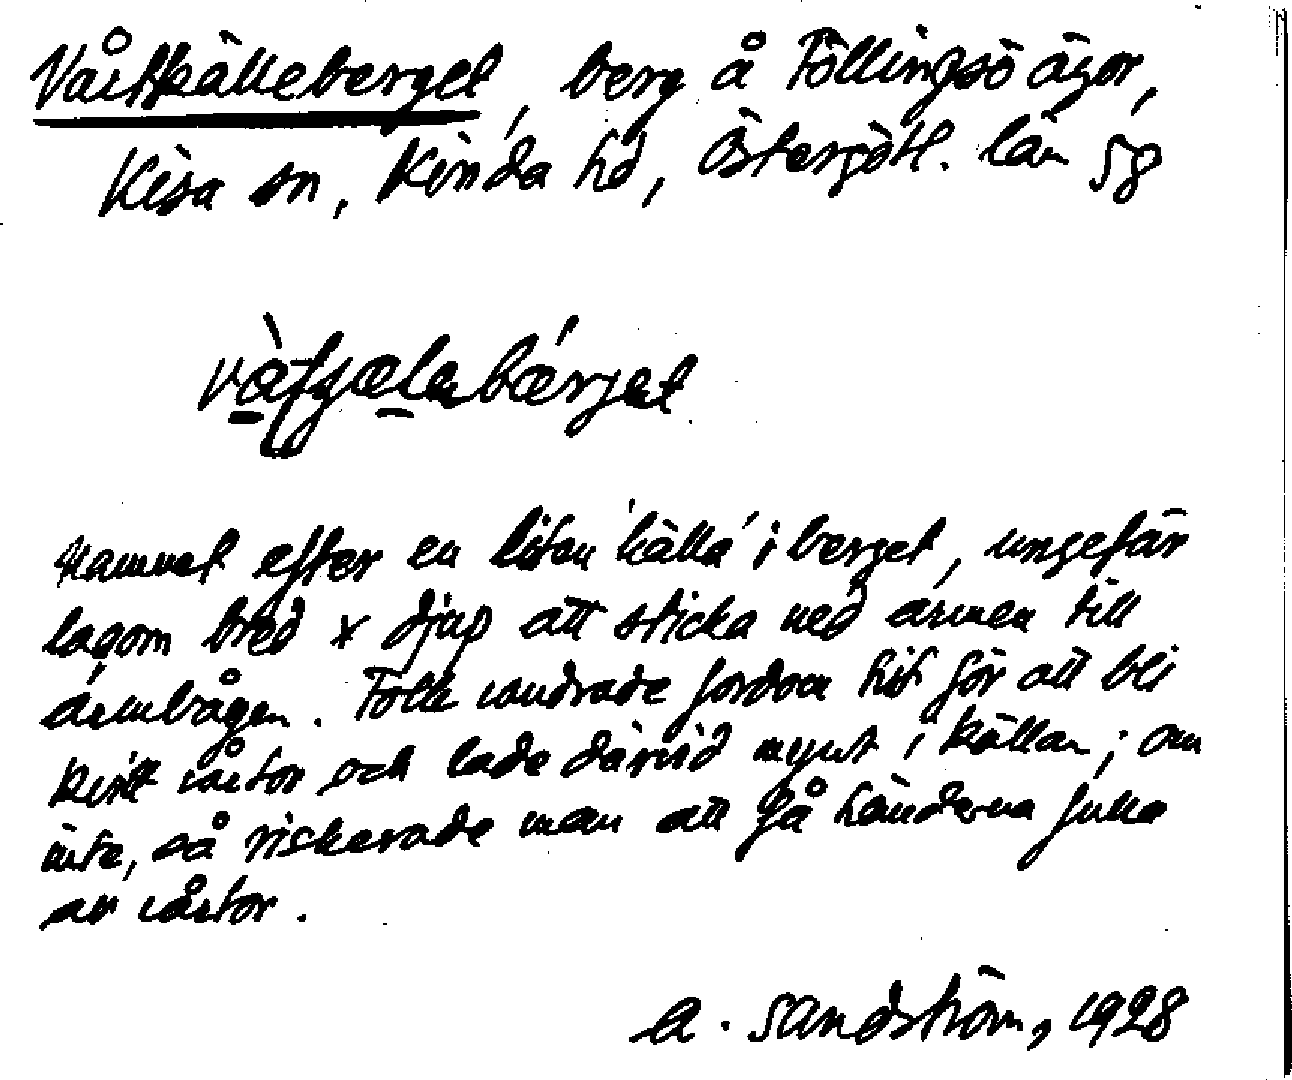 Vårtkälleberget, berg å Föllingsö ägor,
Kisa sn, Kinda hd, Östergötl. län 58
Namnet efter en liten 'källa' i berget, ungefär
lagom bred & djup att sticka ned armen till
armbågen. Folk vandrade fordom hit för att bli
kvitt vårtor och lade därvid mynt i källan; om
inte, så riskerade man att få händerna fulla
av vårtor.
A. Sandström, 1928